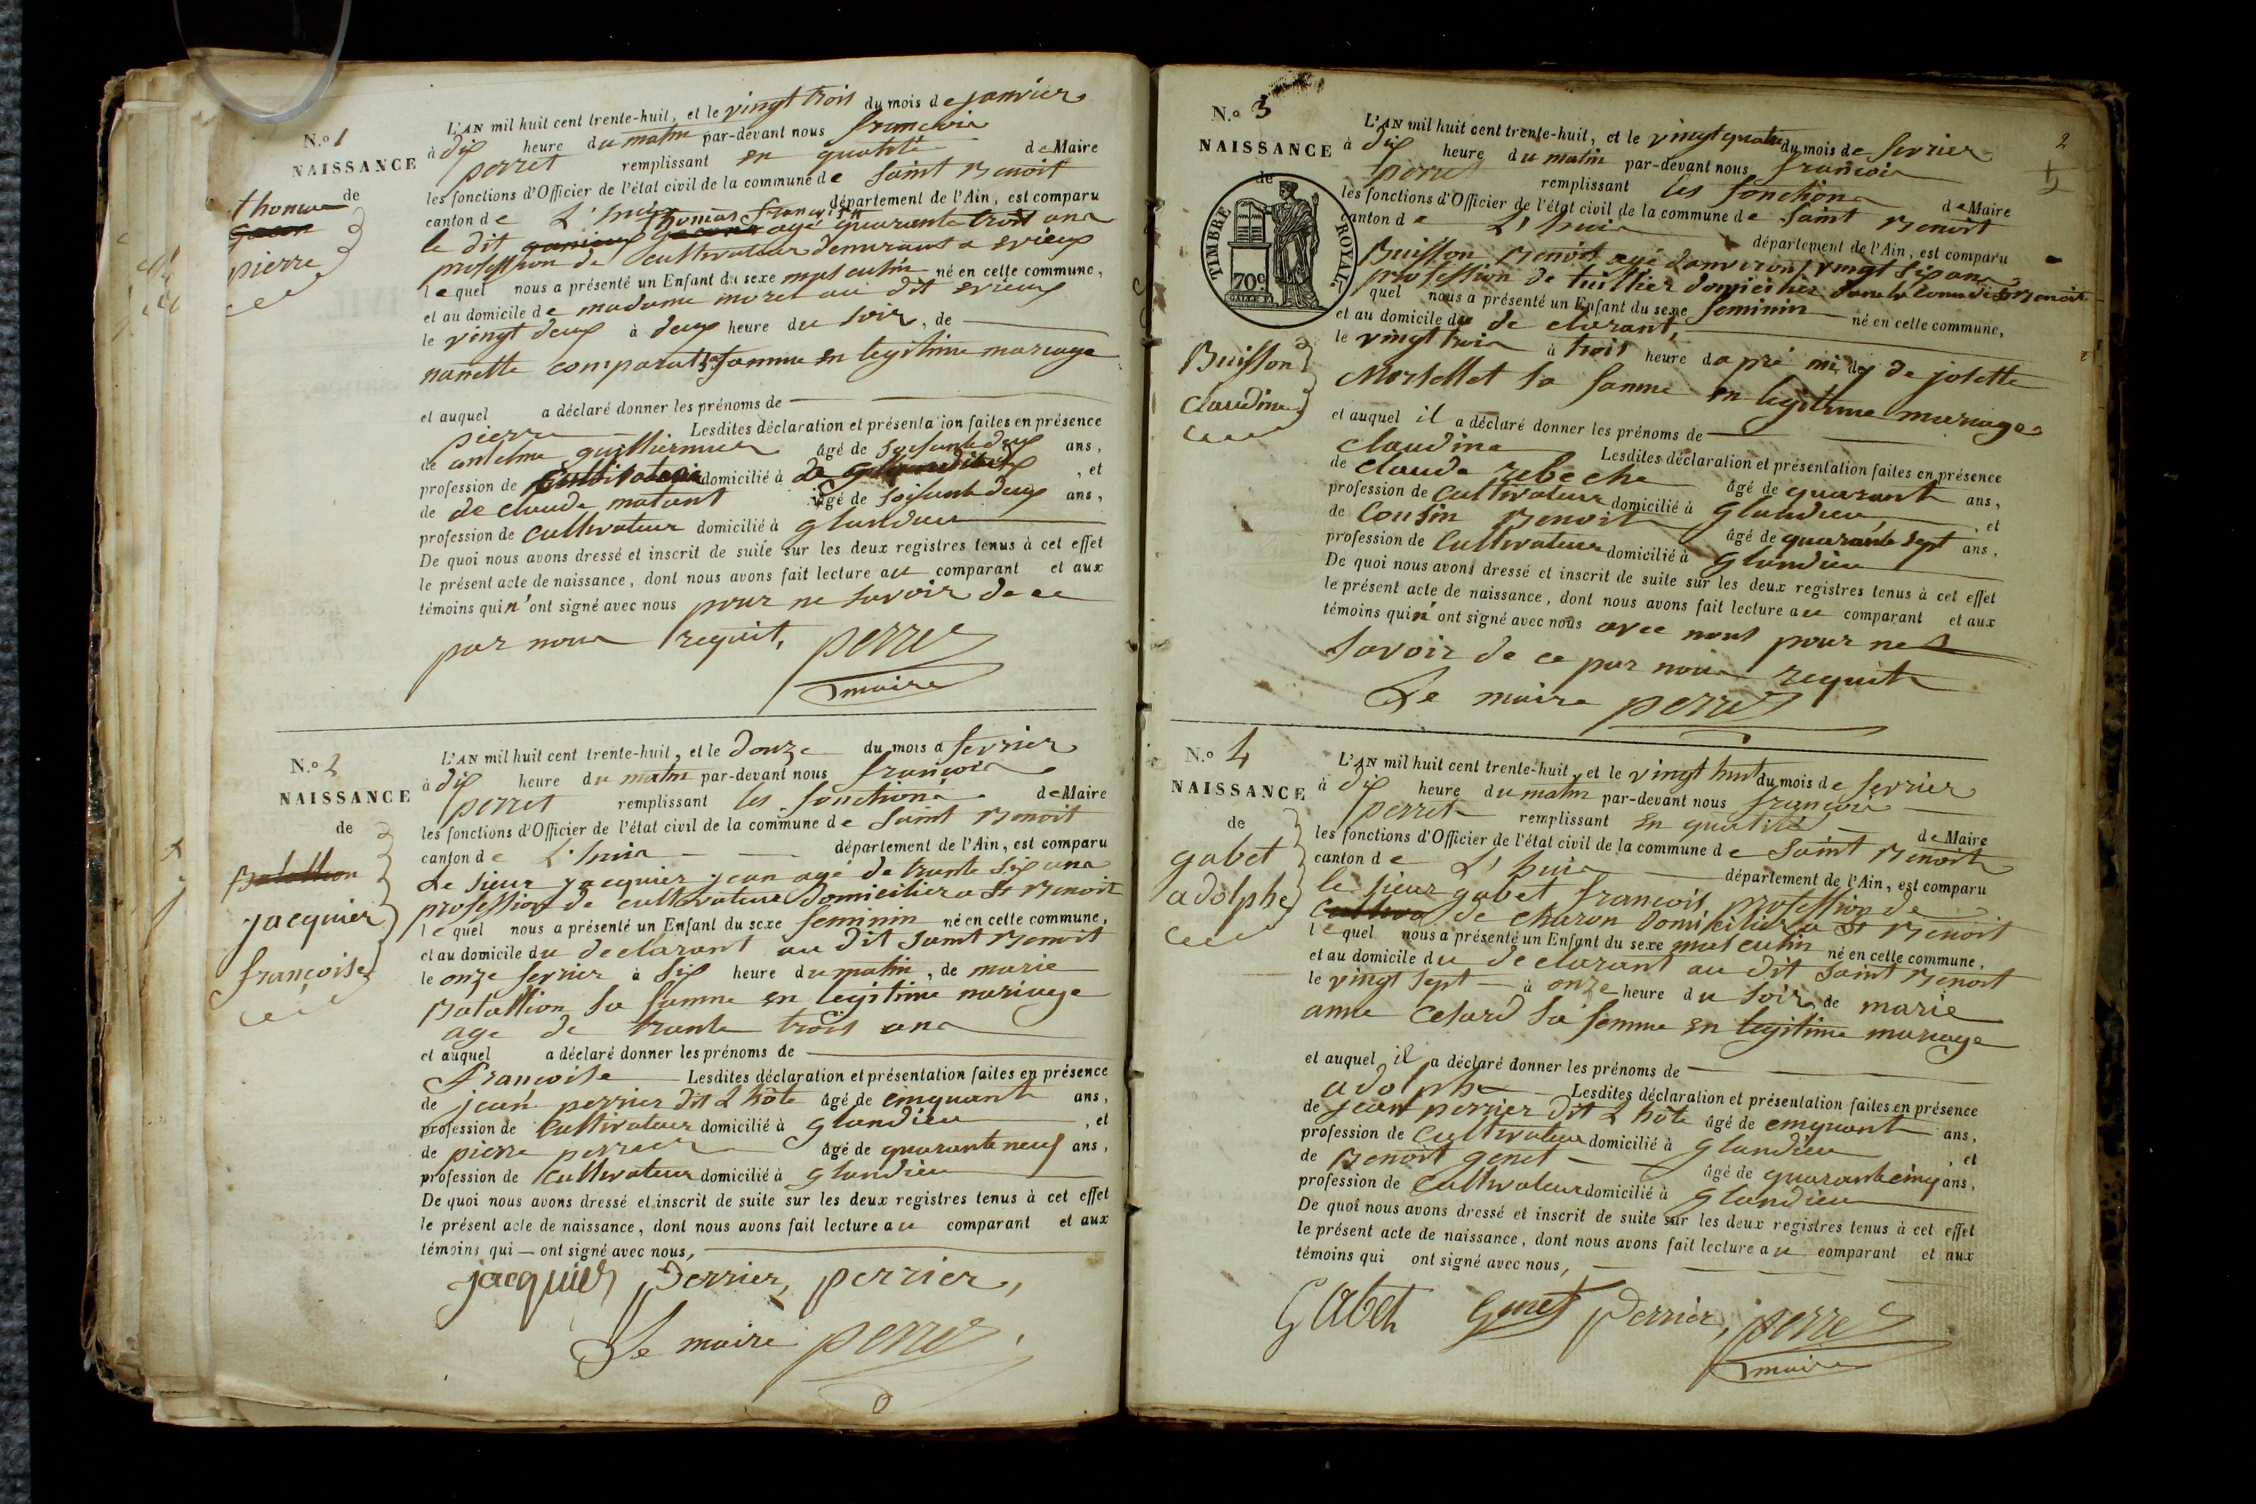 N.° 1
NAISSANCE
de
thomas
gacon
pierre
L'AN mil huit cent trente-huit, et le vingt trois du mois de janvier
à dix heure du matin par-devant nous françois
perret remplissant en qualité de Maire
les fonctions d'Officier de l'état civil de la commune de saint Benoit
canton de L'huis département de l'Ain, est comparu
thomas françois
le dit agé quarante trois ans
profession de cultivateur demurant a evieux
lequel nous a présenté un Enfant du sexe masculin né en cette commune,
et au domicile de madame morel au dit evieux
le vingt deux à deux heure du soir, de
nanette comparat sa famme en legitime mariage
et auquel a déclaré donner les prénoms de
pierre Lesdites déclaration et présentation faites en présence
de anselme guilliermier âgé de soisante deux ans,
profession de cultivateur domicilié à , et
de de claude matant âgé de soisante deux ans,
profession de cultivateur domicilié à glandieu
De quoi nous avons dressé et inscrit de suite sur les deux registres tenus à cet effet
le présent acte de naissance, dont nous avons fait lecture au comparant et aux
témoins qui n'ont signé avec nous pour ne savoir de ce
par nous requit, perret
maire
N.° 2
NAISSANCE
de
Batallion
jacquier
françoise
L'AN mil huit cent trente-huit, et le douze du mois d fevrier
à dix heure du matin par-devant nous françois
perret remplissant les fonctions de Maire
les fonctions d'Officier de l'état civil de la commune de saint Benoit
canton de L'huis département de l'Ain, est comparu
Le sieur jacquier jean agé de trante six ans
profession de cultivateur domicilier a St Benoit
lequel nous a présenté un Enfant du sexe feminin né en cette commune,
et au domicile du declarant au dit saint Benoit
le onze fevrier à six heure du matin, de marie
Batallion sa famme en legitime mariage
age de trante trois ans
et auquel a déclaré donner les prénoms de
françoise Lesdites déclaration et présentation faites en présence
de jean perrier dit L'hôte âgé de cinquante ans,
profession de cultivateur domicilié à glandieu , et
de pierre perrier âgé de quarante neuf ans,
profession de cultivateur domicilié à glandieu
De quoi nous avons dressé et inscrit de suite sur les deux registres tenus à cet effet
le présent acte de naissance, dont nous avons fait lecture au comparant et aux
témoins qui — ont signé avec nous,
jacquier perrier, perrier,
Le maire perret
2
N.° 3
NAISSANCE
de
TIMBRE ROYAL
70c.
Buisson
Claudine
L'AN mil huit cent trente-huit, et le vingt quatre du mois de fevrier
à dix heure du matin par-devant nous françois
perret remplissant les fonctions de Maire
les fonctions d'Officier de l'état civil de la commune de saint Benoit
canton de L'huis département de l'Ain, est comparu
Buisson Benoit agé d'anviron vingt six ans
profession de tuillier domicilier St Benoit
quel nous a présenté un Enfant du sexe feminin né en cette commune,
et au domicile du de clarant,
le vingt trois à trois heure d apré midy de josette
Mortellet sa famme en legitime mariage
et auquel il a déclaré donner les prénoms de
claudine Lesdites déclaration et présentation faites en présence
de claude rebeche âgé de quarant ans,
profession de cultivateur domicilié à glandieu , et
de Cousin Benoit âgé de quarante sept ans,
profession de cultivateur domicilié à glandieu
De quoi nous avons dressé et inscrit de suite sur les deux registres tenus à cet effet
le présent acte de naissance, dont nous avons fait lecture au comparant et aux
témoins qui n'ont signé avec nous avec nous pour ne
savoir de ce par nous requit
Le maire perret
N.° 4
NAISSANCE
de
gabet
adolphe
L'AN mil huit cent trente-huit, et le vingt huit du mois de fevrier
à dix heure du matin par-devant nous françois
perret remplissant en qualité de Maire
les fonctions d'Officier de l'état civil de la commune de saint Benoit
canton de L'huis département de l'Ain, est comparu
le sieur gabet francois profession de
cultiva de charon domicilier a St Benoit
lequel nous a présenté un Enfant du sexe masculin né en cette commune,
et au domicile du declarant au dit saint Benoit
le vingt sept à onze heure du soir, de marie
anne Cesard sa femme en legitime mariage
et auquel il a déclaré donner les prénoms de
adolphe Lesdites déclaration et présentation faites en présence
de jean perrier dit L'hôte âgé de cinquant ans,
profession de cultivateur domicilié à glandieu , et
de Benoit genet âgé de quarante cinq ans,
profession de cultivateur domicilié à glandieu
De quoi nous avons dressé et inscrit de suite sur les deux registres tenus à cet effet
le présent acte de naissance, dont nous avons fait lecture au comparant et aux
témoins qui ont signé avec nous,
Gabet Genet perrier, perret
maire